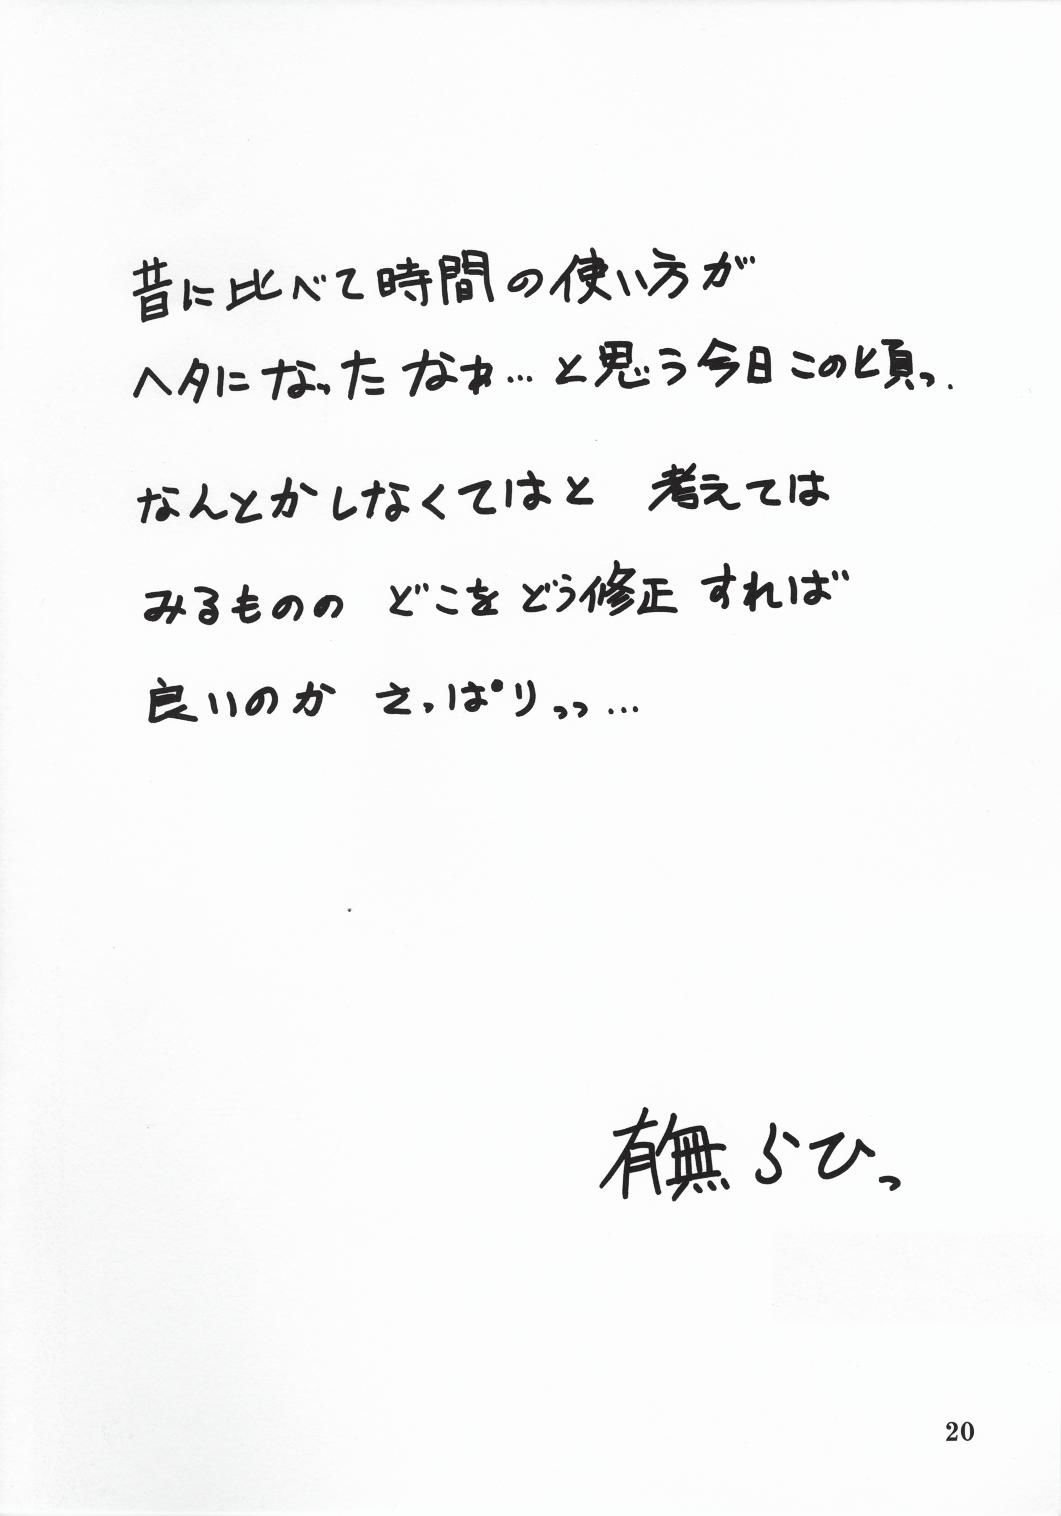 昔に比べて時間の使い方が
ヘタになったなぁ…と思う今日このと頃っ.
なんとかしなくてはと 考えては
みるものの どこをどう修正すれば
良いのか さっぱりっっ…
有無らひっ
20